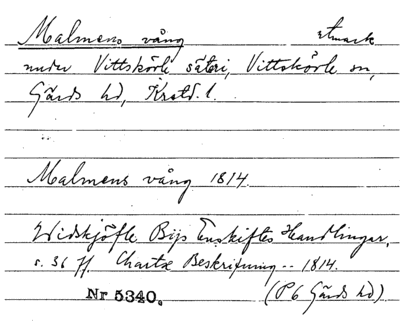 Malmens vång utmark
under Vittskövle säteri, Vittskövle sn,
Gärds hd, Krstd. l.
Malmens vång 1814.
Widskjöfle Bijs Enskiftes Handlingar,
s. 36 ff. Chartæ Beskrifning -- 1814.
Nr 5340. (P6 Gärds hd)